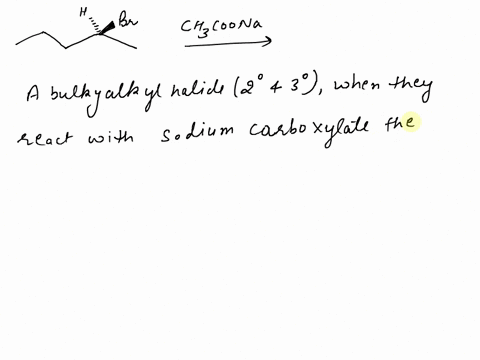 H Br CH3COONa
A bulky alkyl halide (2° & 3°), when they
react with sodium carboxylate the